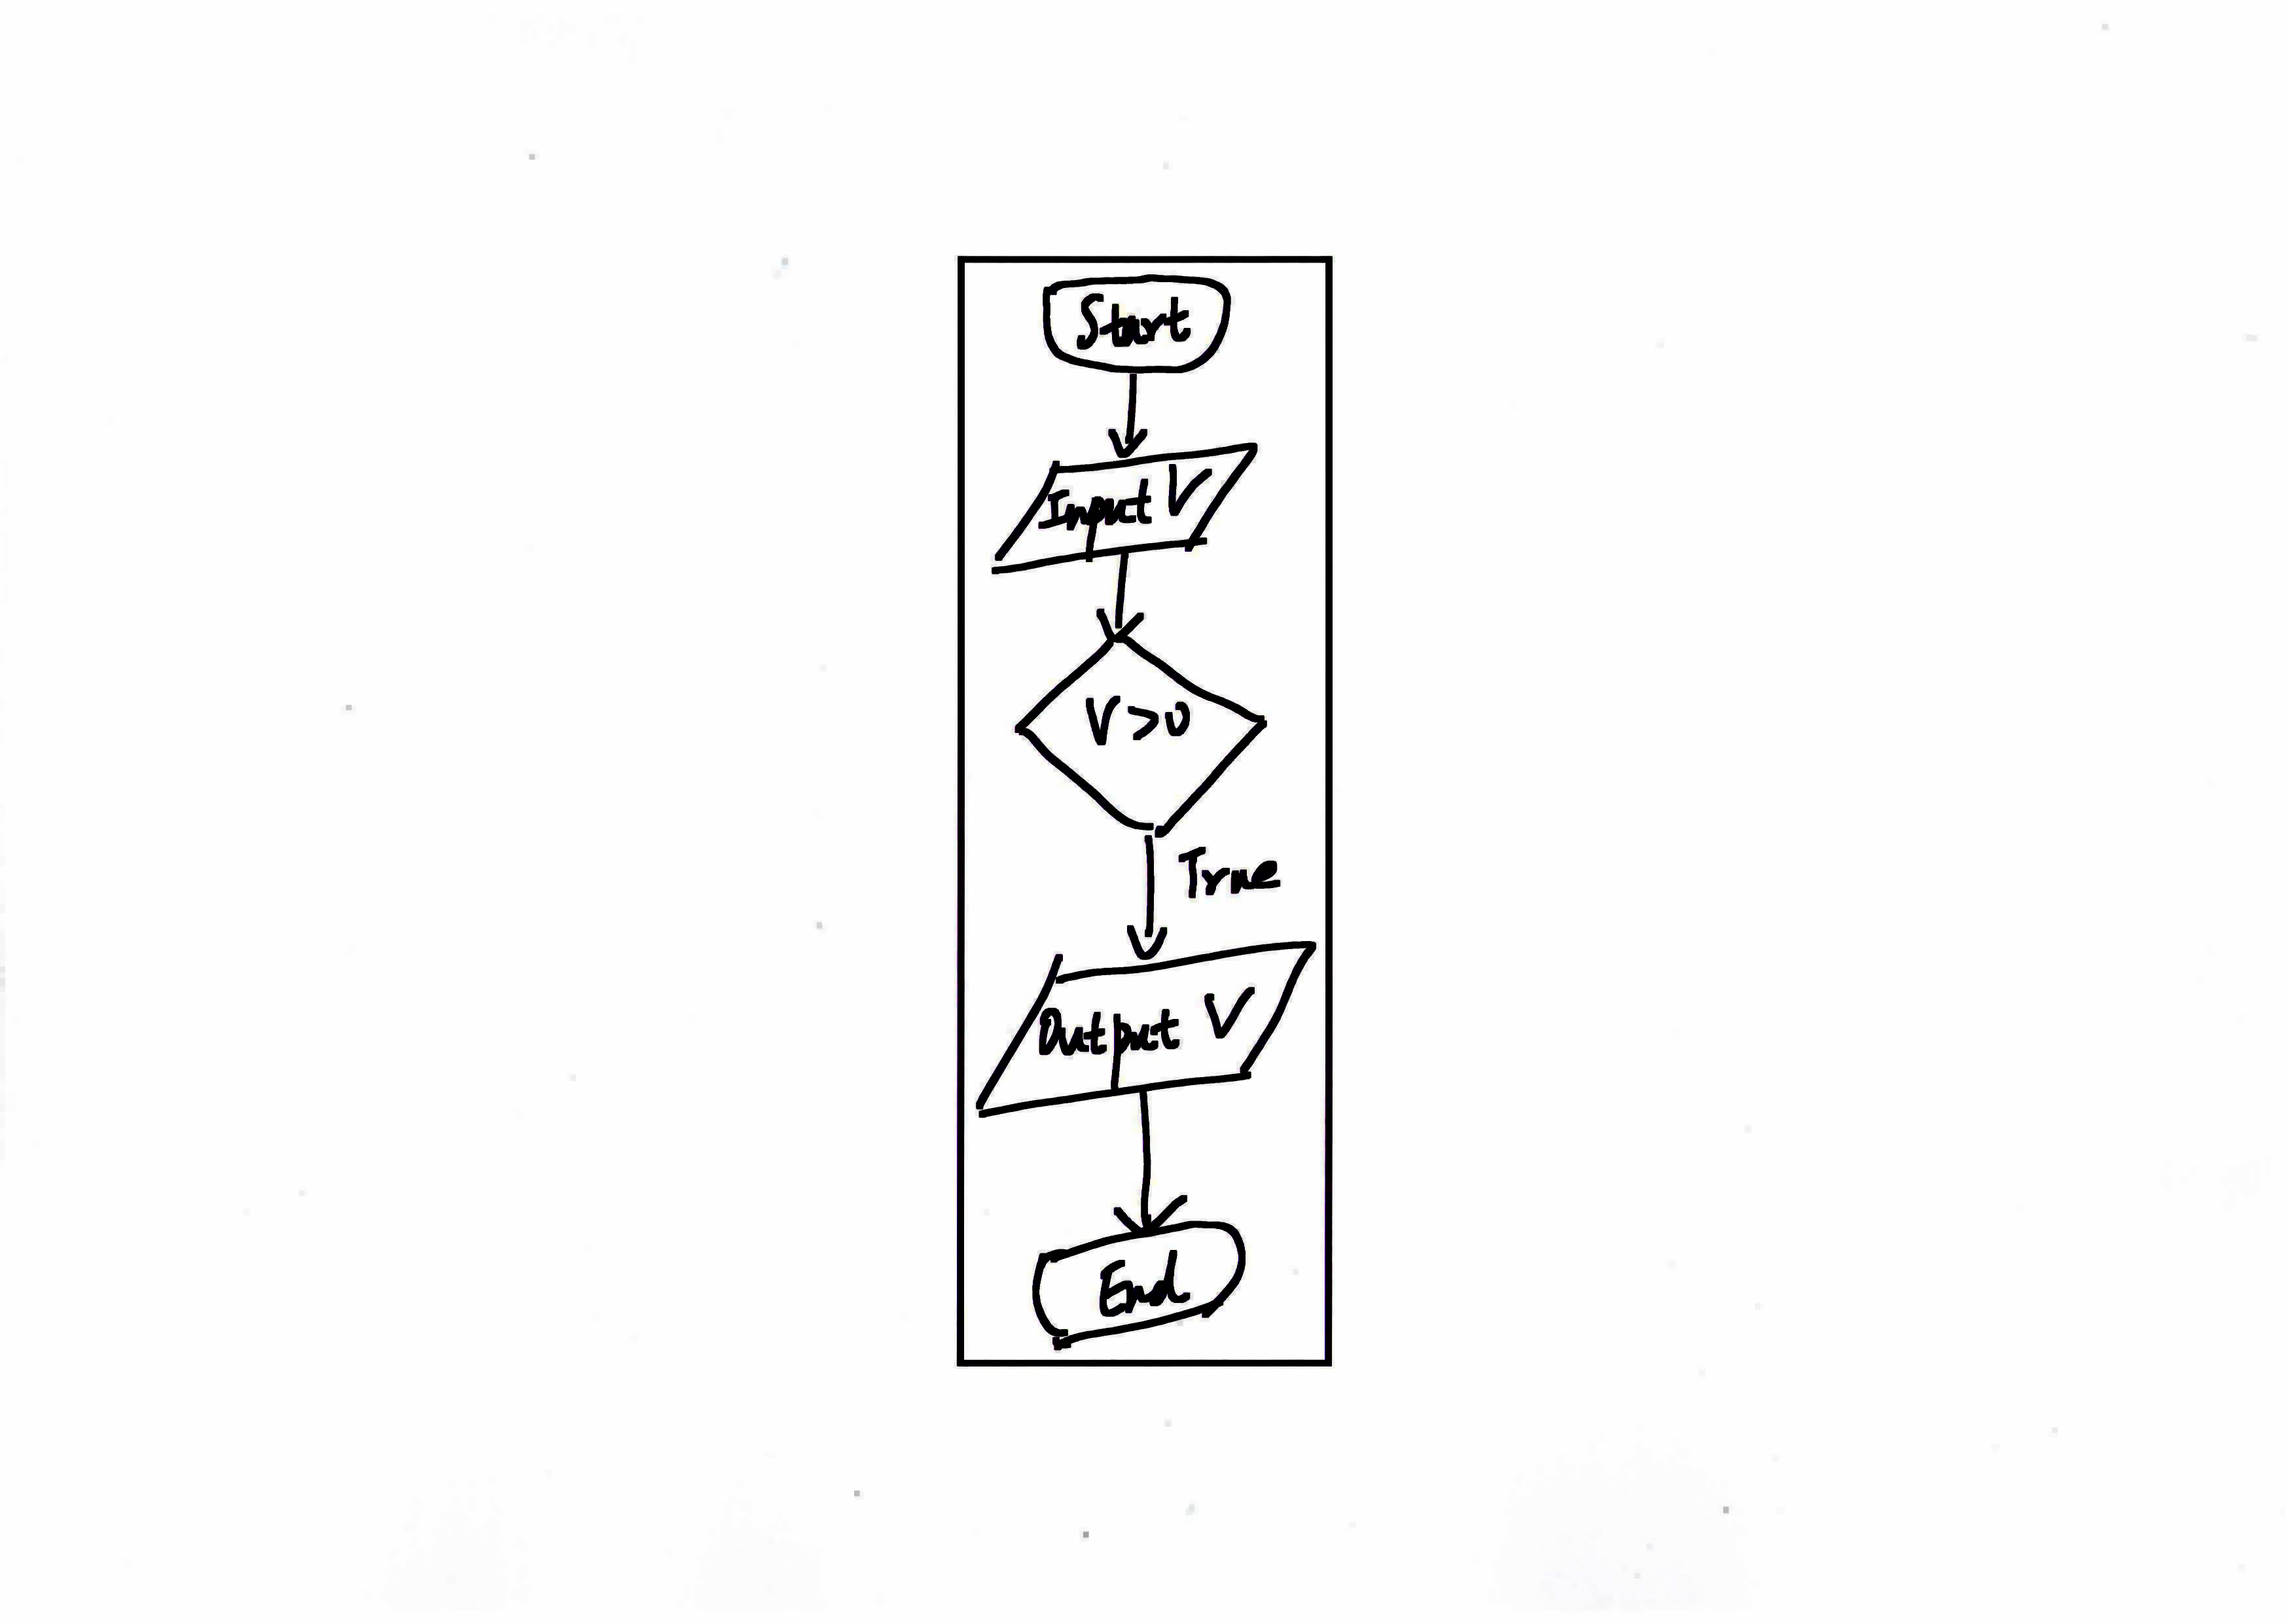 Start
Input V
V>0
True
Output V
End